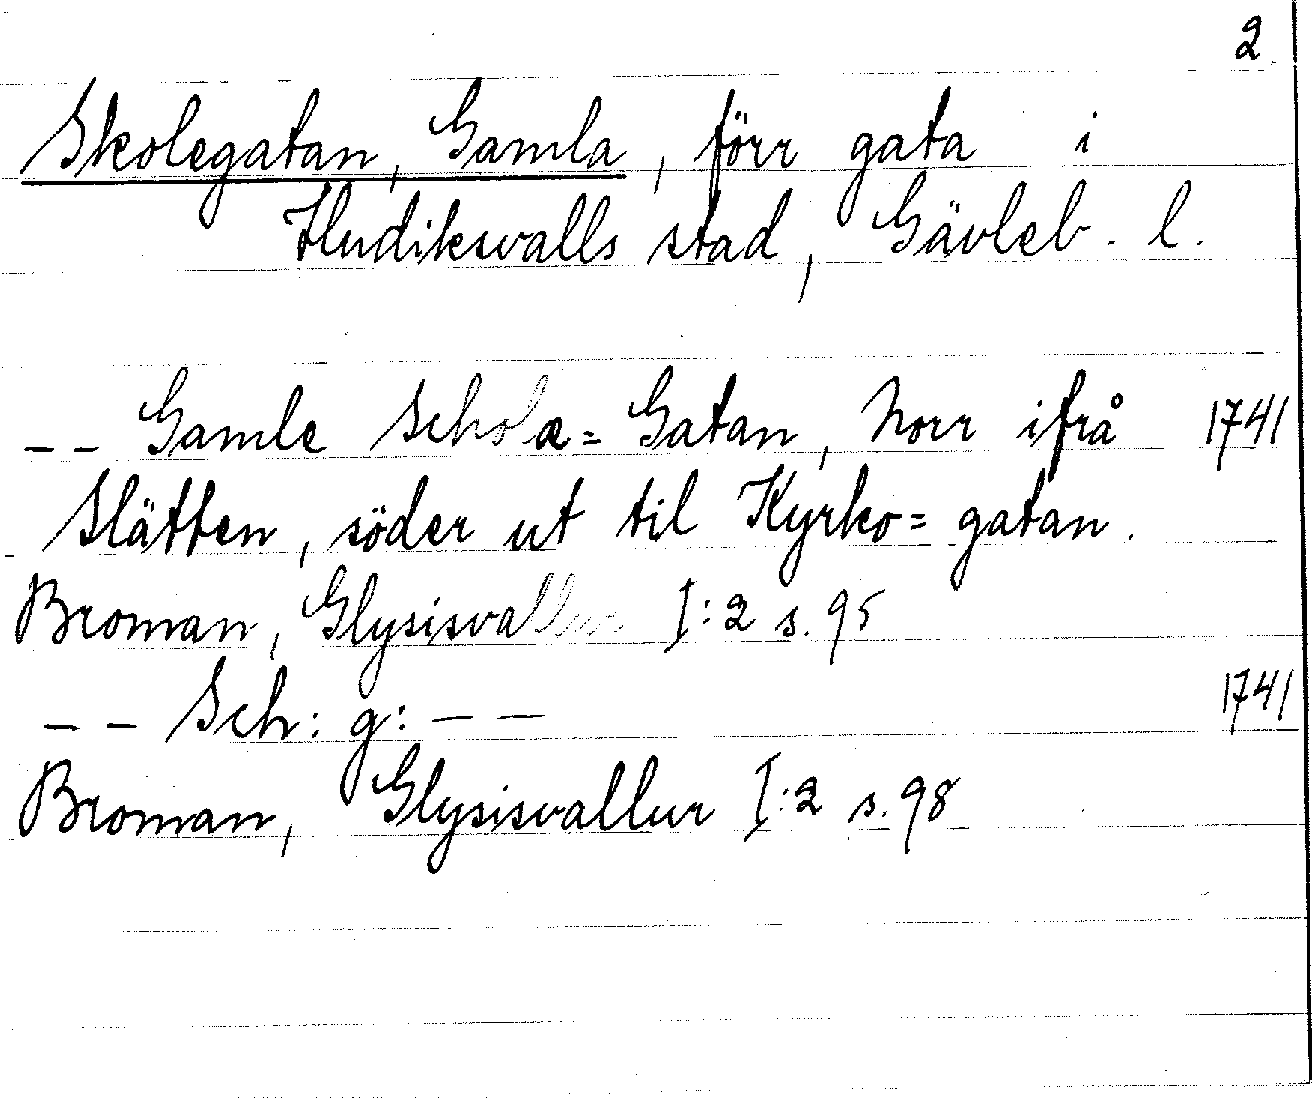 2
Skolegatan, Gamla, förr gata i
Hudiksvalls stad, Gävleb. l.
-- Gamle Schola=Gatan, Norr ifrå 1741
Slätten, söder ut til Kyrko=gatan.
Broman, Glysisvallur I:2 s. 95
-- Sch: g: -- 1741
Broman, Glysisvallur I:2 s. 98